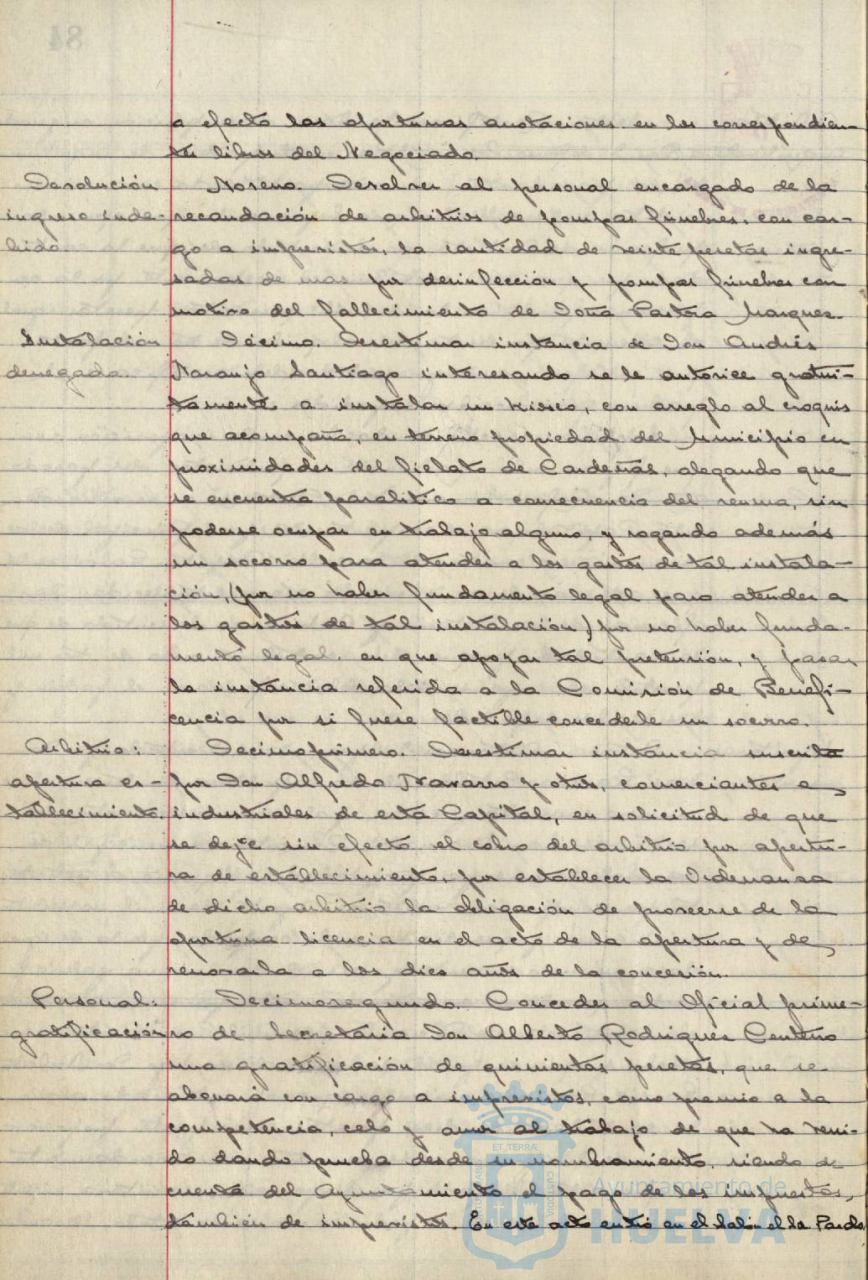 a efecto las oportunas anotaciones en los correspondien-
tes libros del Negociado.
Devolución
ingreso inde-
bido.
Noveno. Devolver al personal encargado de la
recaudación de arbitrios de pompas fúnebres, con car-
go a imprevistos, la cantidad de veinte pesetas ingre-
sadas de mas por desinfección y pompas fúnebres con
motivo del fallecimiento de Doña Pastora Marquez.
Instalación
denegada.
Décimo. Desestimar instancia de Don Andrés
Naranjo Santiago interesando se le autorice gratui-
tamente a instalar un kiosco, con arreglo al croquis
que acompaña, en terreno propiedad del Municipio en
proximidades del fielato de Cardeñas, alegando que
se encuentra paralitico a consecuencia del reuma, sin
poderse ocupar en trabajo alguno, y rogando además
un socorro para atender a los gastos de tal instala-
ción, (por no haber fundamento legal para atender a
los gastos de tal instalación) por no haber funda-
mento legal en que apoyar tal pretensión, y pasar
la instancia referida a la Comisión de Benefi-
cencia por si fuese factible concederle un socorro.
Arbitrio:
apertura es-
tablecimiento.
Decimoprimero. Desestimar instancia suscrita
por Don Alfredo Navarro y otros, comerciantes e
industriales de esta Capital, en solicitud de que
se deje sin efecto el cobro del arbitrio por apertu-
ra de establecimiento, por establecer la Ordenanza
de dicho arbitrio la obligación de proveerse de la
oportuna licencia en el acto de la apertura y de
renovarla a los diez años de la concesión.
Personal:
gratificación
Decimosegundo. Conceder al Oficial prime-
ro de Secretaria Don Alberto Rodriguez Centeno
una gratificación de quinientas pesetas, que se
abonará con cargo a imprevistos, como premio a la
competencia, celo y amor al trabajo de que ha veni-
do dando prueba desde su nombramiento, siendo de
cuenta del Ayuntamiento el pago de los impuestos,
también de imprevistos. En este acto entró en el Salón el Sr. Parda
ET TERRÆ
Ayuntamiento de
HUELVA
84